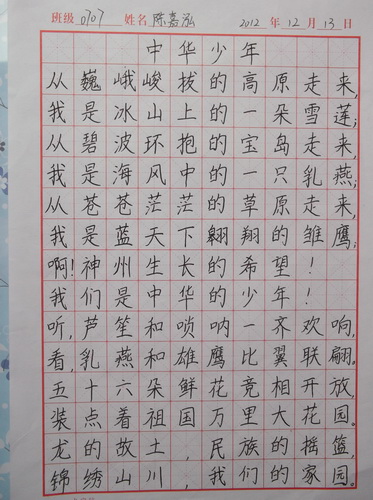 班级 0707 姓名 陈嘉泓 2012 年 12 月 13 日
中华少年
从巍峨峻拔的高原走来,
我是冰山上的一朵雪莲;
从碧波环抱的宝岛走来,
我是海风中的一只乳燕;
从苍苍茫茫的草原走来,
我是蓝天下翱翔的雏鹰;
啊!神州生长的希望!
我们是中华的少年!
听,芦笙和唢呐一齐欢响,
看,乳燕和雄鹰比翼联翩。
五十六朵鲜花竞相开放,
装点着祖国万里大花园。
龙的故土,民族的摇篮,
锦绣山川,我们的家园。